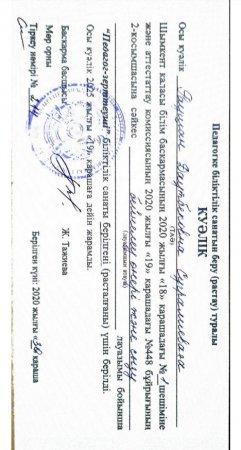 Педагогке біліктілік санатын беру (растау) туралы
КУӘЛІК
Осы куәлік
(ТАӘ)
Шымкент қаласы білім басқармасының 2020 жылғы «18» қарашадағы № шешіміне
және аттестаттау комиссиясының 2020 жылғы «19» қарашадағы №448 бұйрығының
2-қосымшасына сәйкес және
(лауазымның атауы)
лауазымы бойынша
"Педагог-зерттеуші" біліктілік санаты берілгені (расталғаны) үшін берілді.
Осы куәлік 2025 жылғы «19» қарашаға дейін жарамды.
Басқарма басшысы Ж. Тажиева
Мөр орны
Тіркеу нөмірі № Берілген күні: 2020 жылғы қараша